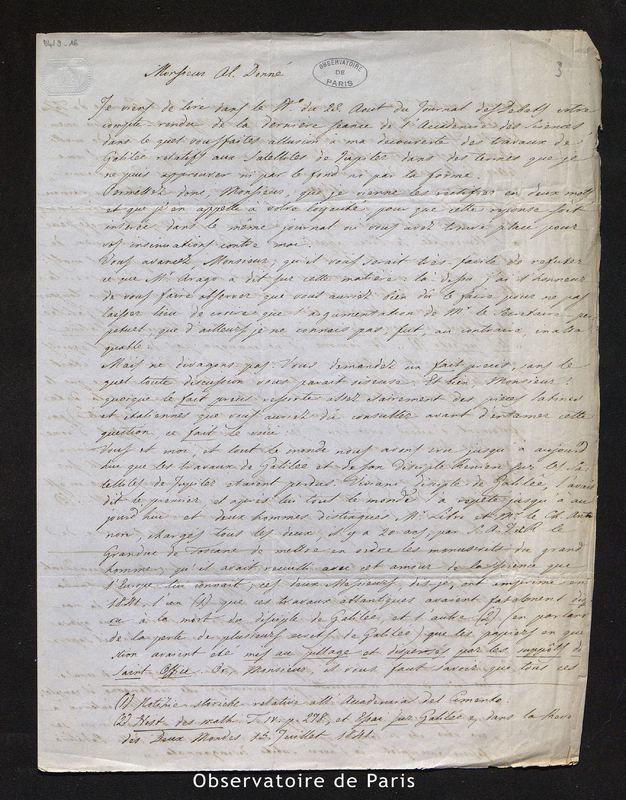 B4/9-16
OBSERVATOIRE DE PARIS
3
Monsieur Al. Donné
Je viens de lire dans le No du 28 Aout du Journal des Debats votre
compte rendu de la derniere seance de l'Academie des Sciences
dans le quel vous faites allusion a ma decouverte des travaux de
Galilée relatifs aux Satellites de Jupiter dans des termes que je
ne puis approuver ni par le fond ni par la forme.
Permettez donc, Monsieur, que je vienne les rectifier en deux mots
et que j'en appelle à votre loyauté, pour que cette reponse soit
inserée dans le même journal ou vous avez trouvé place pour
vos insinuations contre moi.
Vous avancez, Monsieur, qu'il vous serait très facile de refuter
ce que Mr Arago a dit sur cette matière: là dessu j'ai l'honneur
de vous faire observer que vous auriez bien dû le faire pour ne pas
laisser lieu de croire que l'argumentation de Mr le Secretaire per
petuel, que d'ailleurs je ne connais pas, fut, au contraire inatta
quable.
Mais ne divagons pas: Vous demandez un fait precis, sans le
quel toute discussion vous parait oiseuse. Et bien, Monsieur!
quoique le fait precis ressorte assez clairement des pièces latines
et italiennes que vous auriez dû consulter avant d'entamer cette
question, ce fait le voici:
Vous et moi, et tout le monde nous avons cru jusqu'a aujourd'
hui que les travaux de Galilée et de son disciple Renieri sur les Sa
tellites de Jupiter etaient perdus. Viviani disciple de Galilée l'avait
dit le premier et après lui tout le monde l'a repeté jusqu'a au
jourd'hui: et deux hommes distingués Mr Libri et Mr le Ch. Anti
nori, chargés tous les deux, il y a 20 ans, par S. A. I. et R. le
Grandue de Toscane de mettre en ordre les manuscrits du grand
homme, qu'il avait recueilli avec cet amour de la science que
l'Europe lui connait; ces deux Messieurs, dis-je, ont imprimé en
1841, l'un (1) que ces travaux atlantiques avaient fatalment dis
paru à la mort du disciple de Galilée, et l'autre (2) (en parlant
de la perte de plusieurs ecrits de Galilée) que les papiers en que
stion avaient été mis au pillage et dispersés par les suppôts du
Saint Office. Or, Monsieur, il vous faut savoir que tous ces
(1) Notizie storiche relative all' Accademia del Cimento.
(2) Hist. des math. T. IV. p. 278, et Essai sur Galilée, dans la Revue
des Deux Mondes 15. Juillet 1841.
Observatoire de Paris